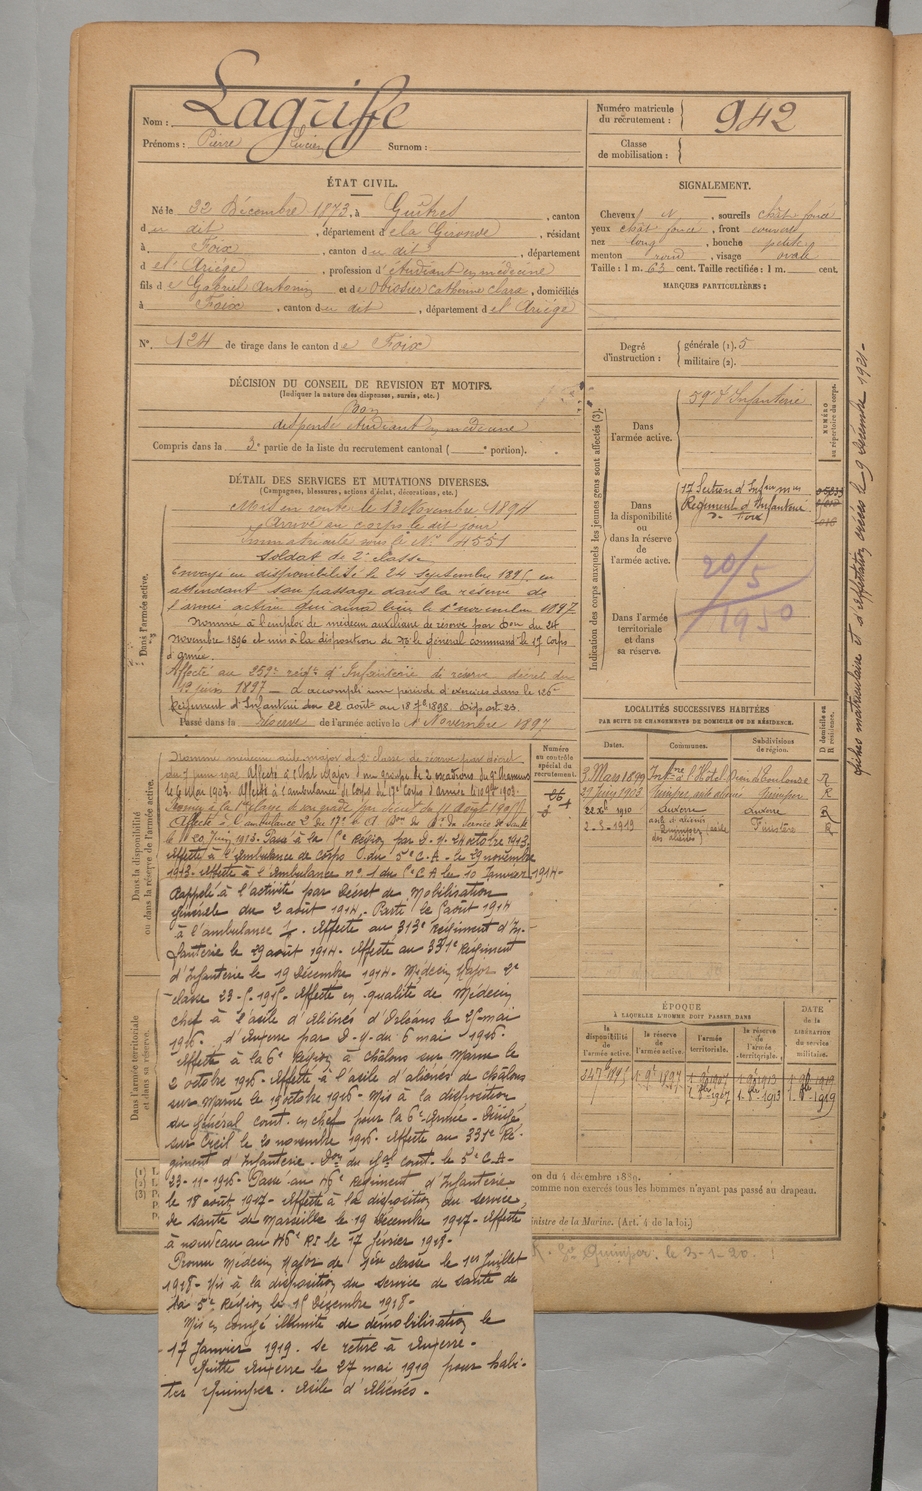 Nom : Lagriffe
Prénoms : Pierre Lucien Surnom :
Numéro matricule
du recrutement : 942
Classe
de mobilisation :
ÉTAT CIVIL.
Né le 22 Décembre 1873, à Guîtres, canton
du dit, département de la Gironde, résidant
à Foix, canton du dit, département
de l'Ariège, profession d'étudiant en médecine
fils de Gabriel Antonin et de Catherine Clara, domiciliés
à Foix, canton du dit, département de l'Ariège
N° 124 de tirage dans le canton de Foix
SIGNALEMENT.
Cheveux, sourcils chât foncé
yeux chât foncé, front couvert
nez long, bouche petite
menton rond, visage ovale
Taille : 1 m. 63 cent. Taille rectifiée : 1 m. cent.
MARQUES PARTICULIÈRES :
Degré
d'instruction :
générale (1). 5
militaire (2).
DÉCISION DU CONSEIL DE REVISION ET MOTIFS.
(Indiquer la nature des dispenses, sursis, etc.)
Bon
dispensé étudiant en médecine
Compris dans la 3e partie de la liste du recrutement cantonal ( e portion).
DÉTAIL DES SERVICES ET MUTATIONS DIVERSES.
(Campagnes, blessures, actions d'éclat, décorations, etc.)
Dans l'armée active.
Mis en route le 13 Novembre 1894
Arrivé au corps le dit jour
Immatriculé sous le N° 4551
soldat de 2e classe
Envoyé en disponibilité le 24 septembre 1895, en
attendant son passage dans la réserve de
l'armée active qui aura lieu le 1er novembre 1897
Nommé à l'emploi de médecin auxiliaire de réserve par Don du 24
Novembre 1896 et mis à la disposition de Mr le Général commandt le 17e Corps
d'armée.
Affecté au 259e régt d'Infanterie de réserve décret du
19 juin 1897 — a accompli une période d'exercices dans le 126e
Régiment d'Infanterie du 22 août au 18 7bre 1898.
Passé dans la réserve de l'armée active le 1er Novembre 1897
Indication des corps auxquels les jeunes gens sont affectés (3).
Dans
l'armée active.
59e d'Infanterie
Dans
la disponibilité
ou
dans la réserve
de
l'armée active.
17 Section d'Infirmiers
Régiment d'Infanterie
de Foix
Dans
l'armée
territoriale
et dans
sa réserve.
20/5
1950
NUMÉRO
au répertoire du corps.
fiches matriculaire et d'affectation créées le 9 décembre 1921-
LOCALITÉS SUCCESSIVES HABITÉES
PAR SUITE DE CHANGEMENTS DE DOMICILE OU DE RÉSIDENCE.
Dates. Communes. Subdivisions
de région. D domicile ou
R résidence.
3 Mars 1899
29 Juin 1903 Quimper Quimper R
22 1910 Auxerre Auxerre
2-5-1919 Quimper (asile
des aliénés) Finistère
Dans la disponibilité
ou dans la réserve de l'armée active.
Numéro
au contrôle
spécial du
recrutement.
Nommé médecin aide-major de 2e classe de réserve par décret
le 6 Mai 1903. Affecté à l'ambulance de corps du 17e Corps d'armée le 10 9bre 1903.
le 20 Juin 1913. Passé à la 5e Région par D. M. 24 octobre 1913.
Affecté à l'Ambulance de corps du 5e C.A. le 29 novembre
1913. Affecté à l'Ambulance n° 1 du 5e C A le 10 Janvier 1914-
Rappelé à l'activité par Décret de Mobilisation
Générale du 2 août 1914. Parti le 5 août 1914
à l'ambulance. Affecté au 313e Régiment d'In-
fanterie le 29 août 1914. Affecté au 331e Régiment
d'Infanterie le 19 Décembre 1914. Médecin Major 2e
classe 23-5-1915. Affecté en qualité de Médecin
chef à l'asile d'aliénés d'Orléans le 25 mai
1916. d'Auxerre par D. M. du 6 mai 1916.
Affecté à la 6e Région à Châlons sur Marne le
2 octobre 1916. Affecté à l'asile d'aliénés de Châlons
sur Marne le octobre 1916. Mis à la disposition
du général comt en chef pour la 6e Armée. Dirigé
sur Creil le 20 novembre 1916. Affecté au 331e Ré-
giment d'Infanterie. Don du Gal comt. le 5e C.A-
23-11-1916. Passé au 46e Régiment d'Infanterie
le 18 août 1917. Affecté à la disposition du service
de santé de Marseille le 19 Décembre 1917. Affecté
à nouveau au 46e RI le 17 février 1918-
Promu Médecin Major de 1ère classe le 1er Juillet
1918. Mis à la disposition du service de santé de
la 5e Région le 15 Décembre 1918-
Mis en congé illimité de démobilisation le
17 Janvier 1919. se retire à Auxerre-
Quitte Auxerre le 27 mai 1919 pour habi-
ter Quimper. Asile d'Aliénés.
Dans l'armée territoriale
et dans sa réserve.
ÉPOQUE
À LAQUELLE L'HOMME DOIT PASSER DANS
la
disponibilité
de
l'armée active.
la réserve
de
l'armée active.
l'armée
territoriale.
la réserve
de
l'armée
territoriale.
DATE
de la
LIBÉRATION
du service
militaire.
24 7bre 1895 1 9b 1897 1 9b 1907 1 9b 1913 1 9b 1919
on du 4 décembre 1889.
comme non exercés tous les hommes n'ayant pas passé au drapeau.
ministre de la Marine. (Art. 4 de la loi.)
Quimper. le 3-1-20.